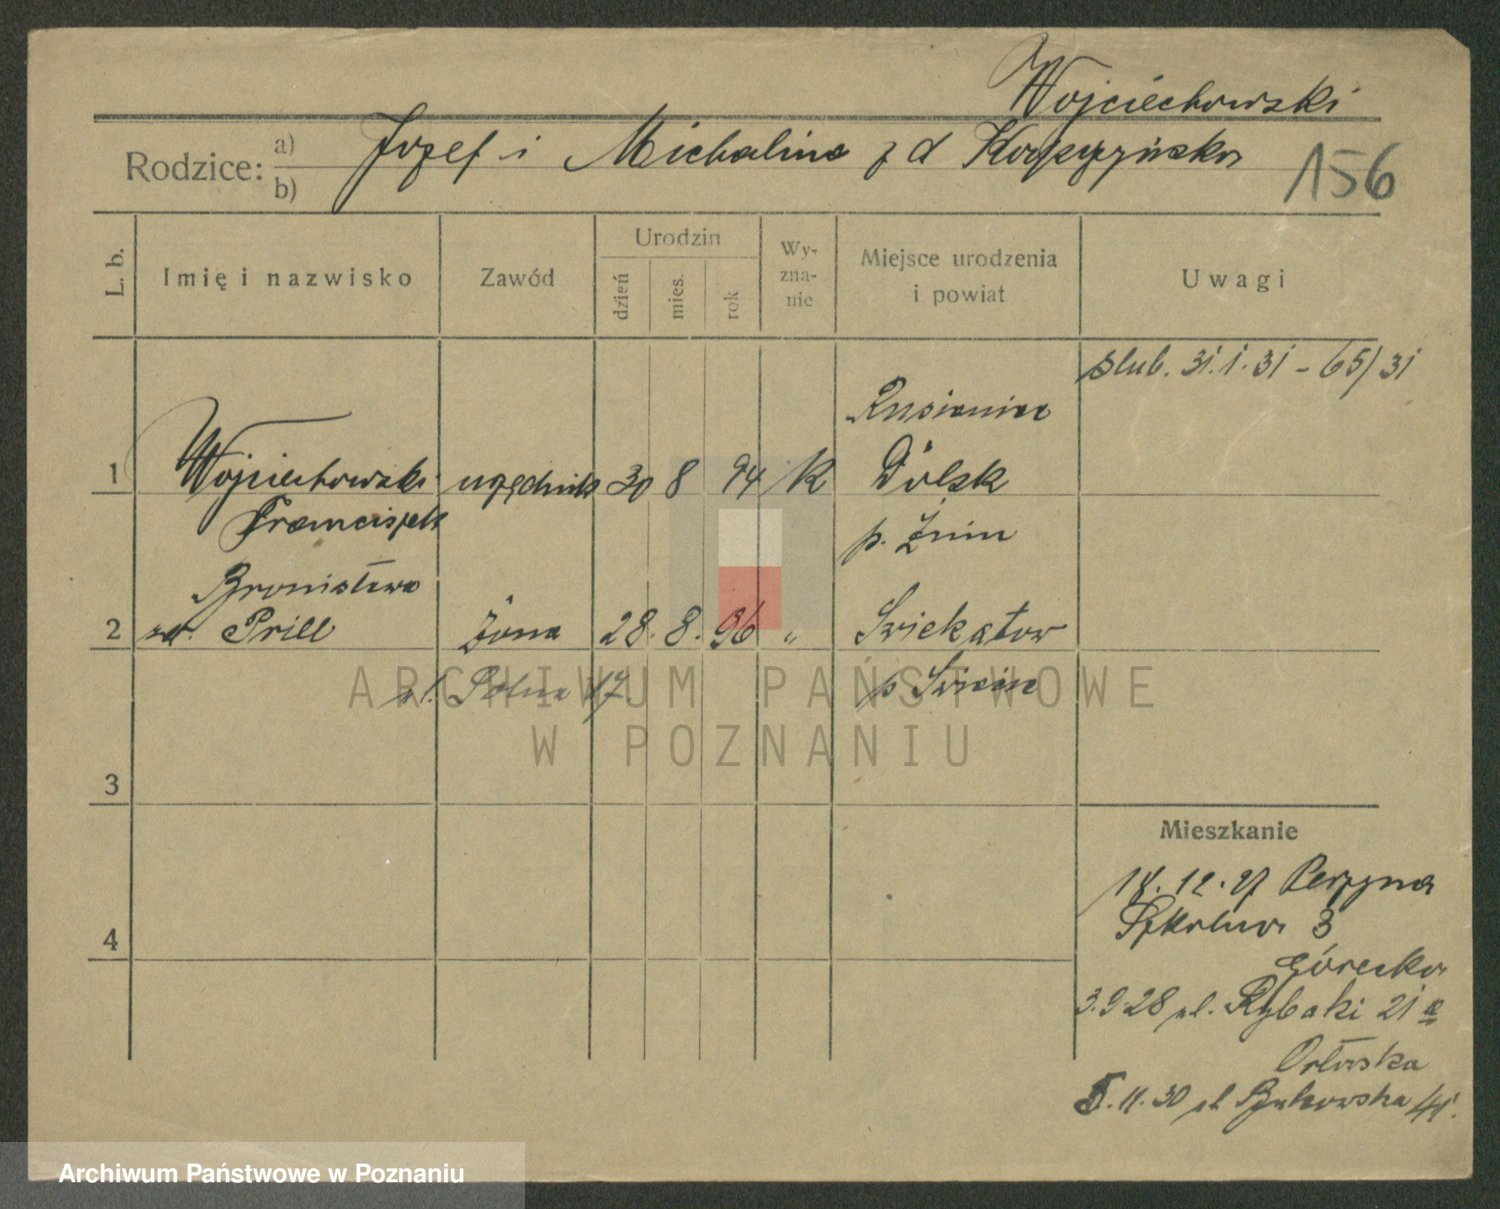 Wojciechowski
Rodzice: a) Józef i Michalina z d
b)
156
L. b. Imię i nazwisko Zawód Urodzin dzień mies. rok Wy-zna-nie Miejsce urodzenia i powiat Uwagi
ślub. 31.1.31 - 65/31
1 Wojciechowski urzędnik 30 8 94 K Dolsk
Franciszek p. Żnin
Bronisława
2 zd. Prill żona 28. 8. 96 " Świekatow
ul. Polna 17. p Świecie
3
4
Mieszkanie
18.12.27
Szkolna 3
Górecka
3.9.28 ul. Rybaki 21 a
Orłowska
5.11.30 ul Bukowska 41.
ARCHIWUM PAŃSTWOWE
W POZNANIU
Archiwum Państwowe w Poznaniu